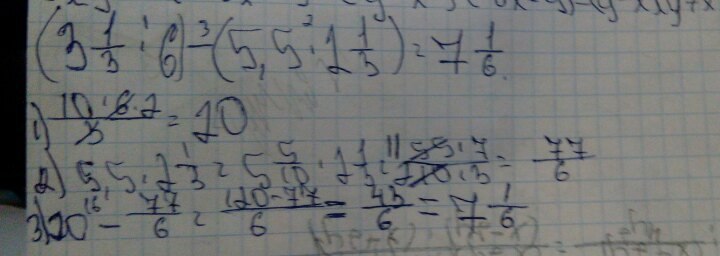 (3 1/3 · 6) − (5,5 · 2 1/3) = 7 1/6.
1) 10·6·2/3 = 20
2) 5,5 · 2 1/3 = 5 5/10 · 2 1/3 = 55·7/10·3 = 77/6
3) 20 − 77/6 = 120−77/6 = 43/6 = 7 1/6